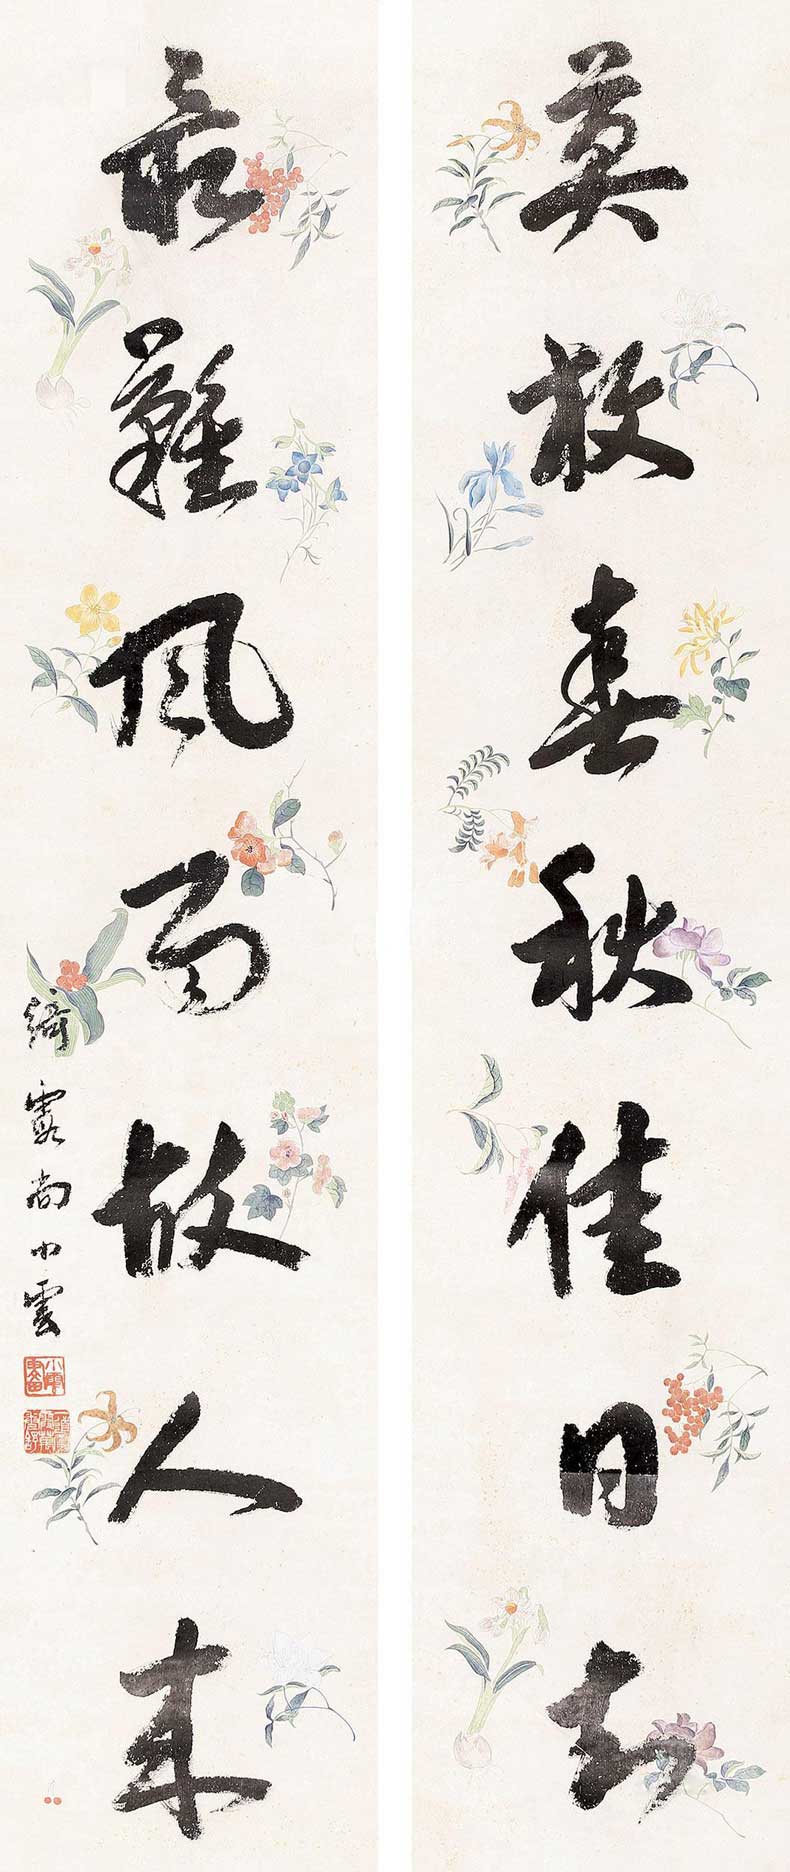 莫放春秋佳日
最難風雨故人來
綺霞尚小雲